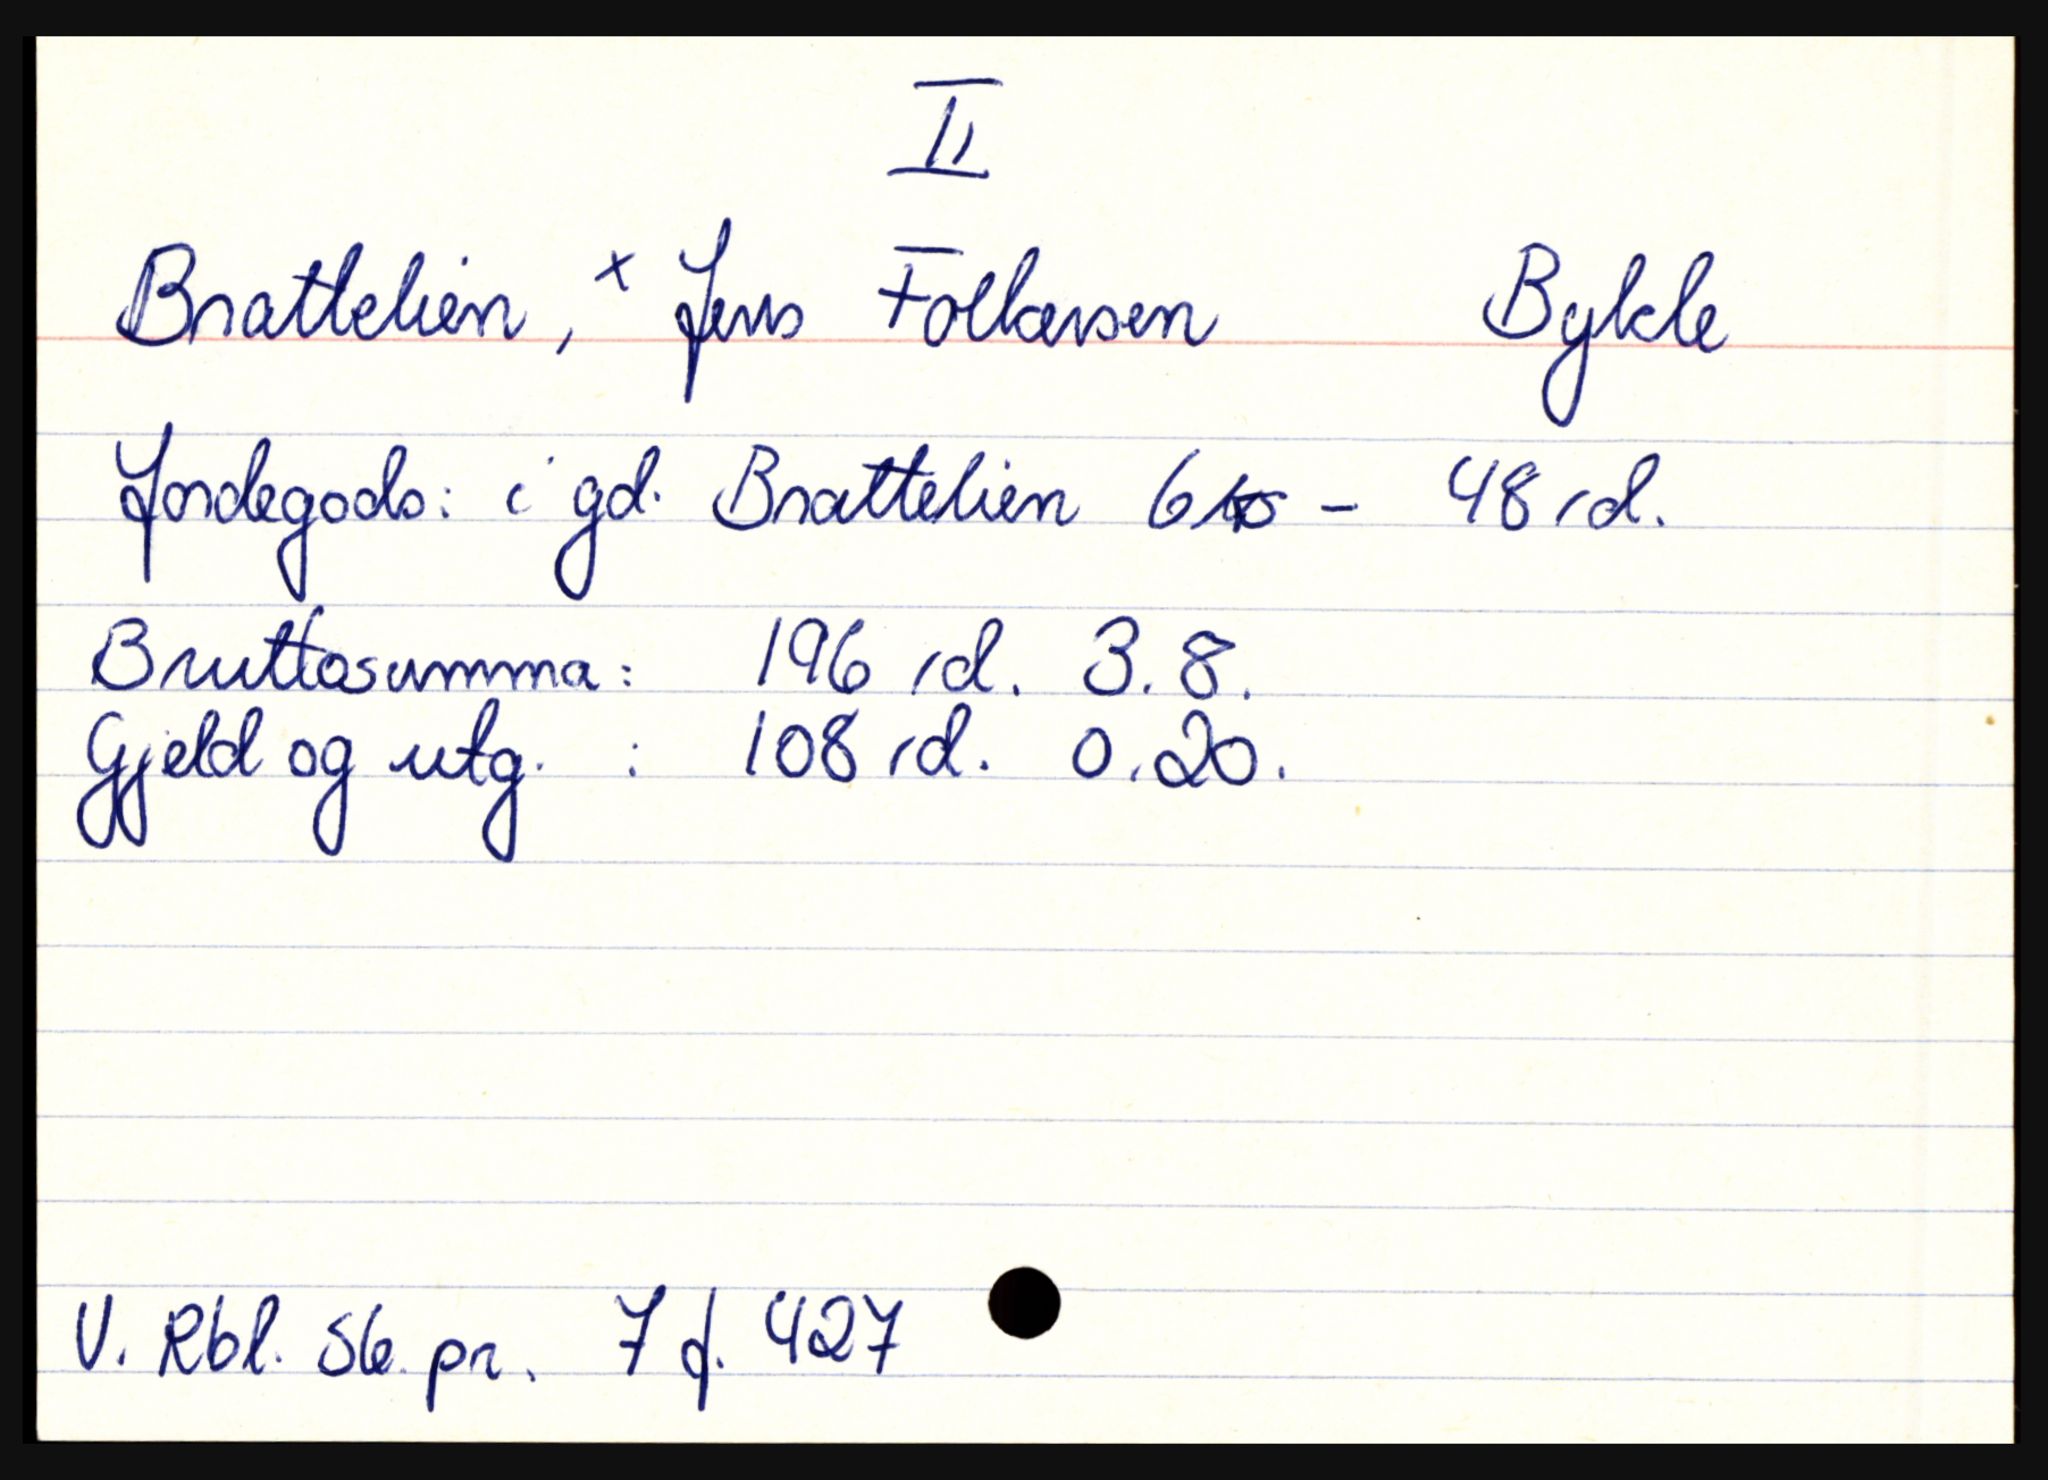 II
Brattelien, x Jens Folkersen Bykle
Jordegods: i gd. Brattelien 6 - 48 rd.
Bruttosumma: 196 rd. 3. 8.
Gjeld og utg. : 108 rd. 0. 20.
V. Rbl. Sk. pr. 7 f. 427